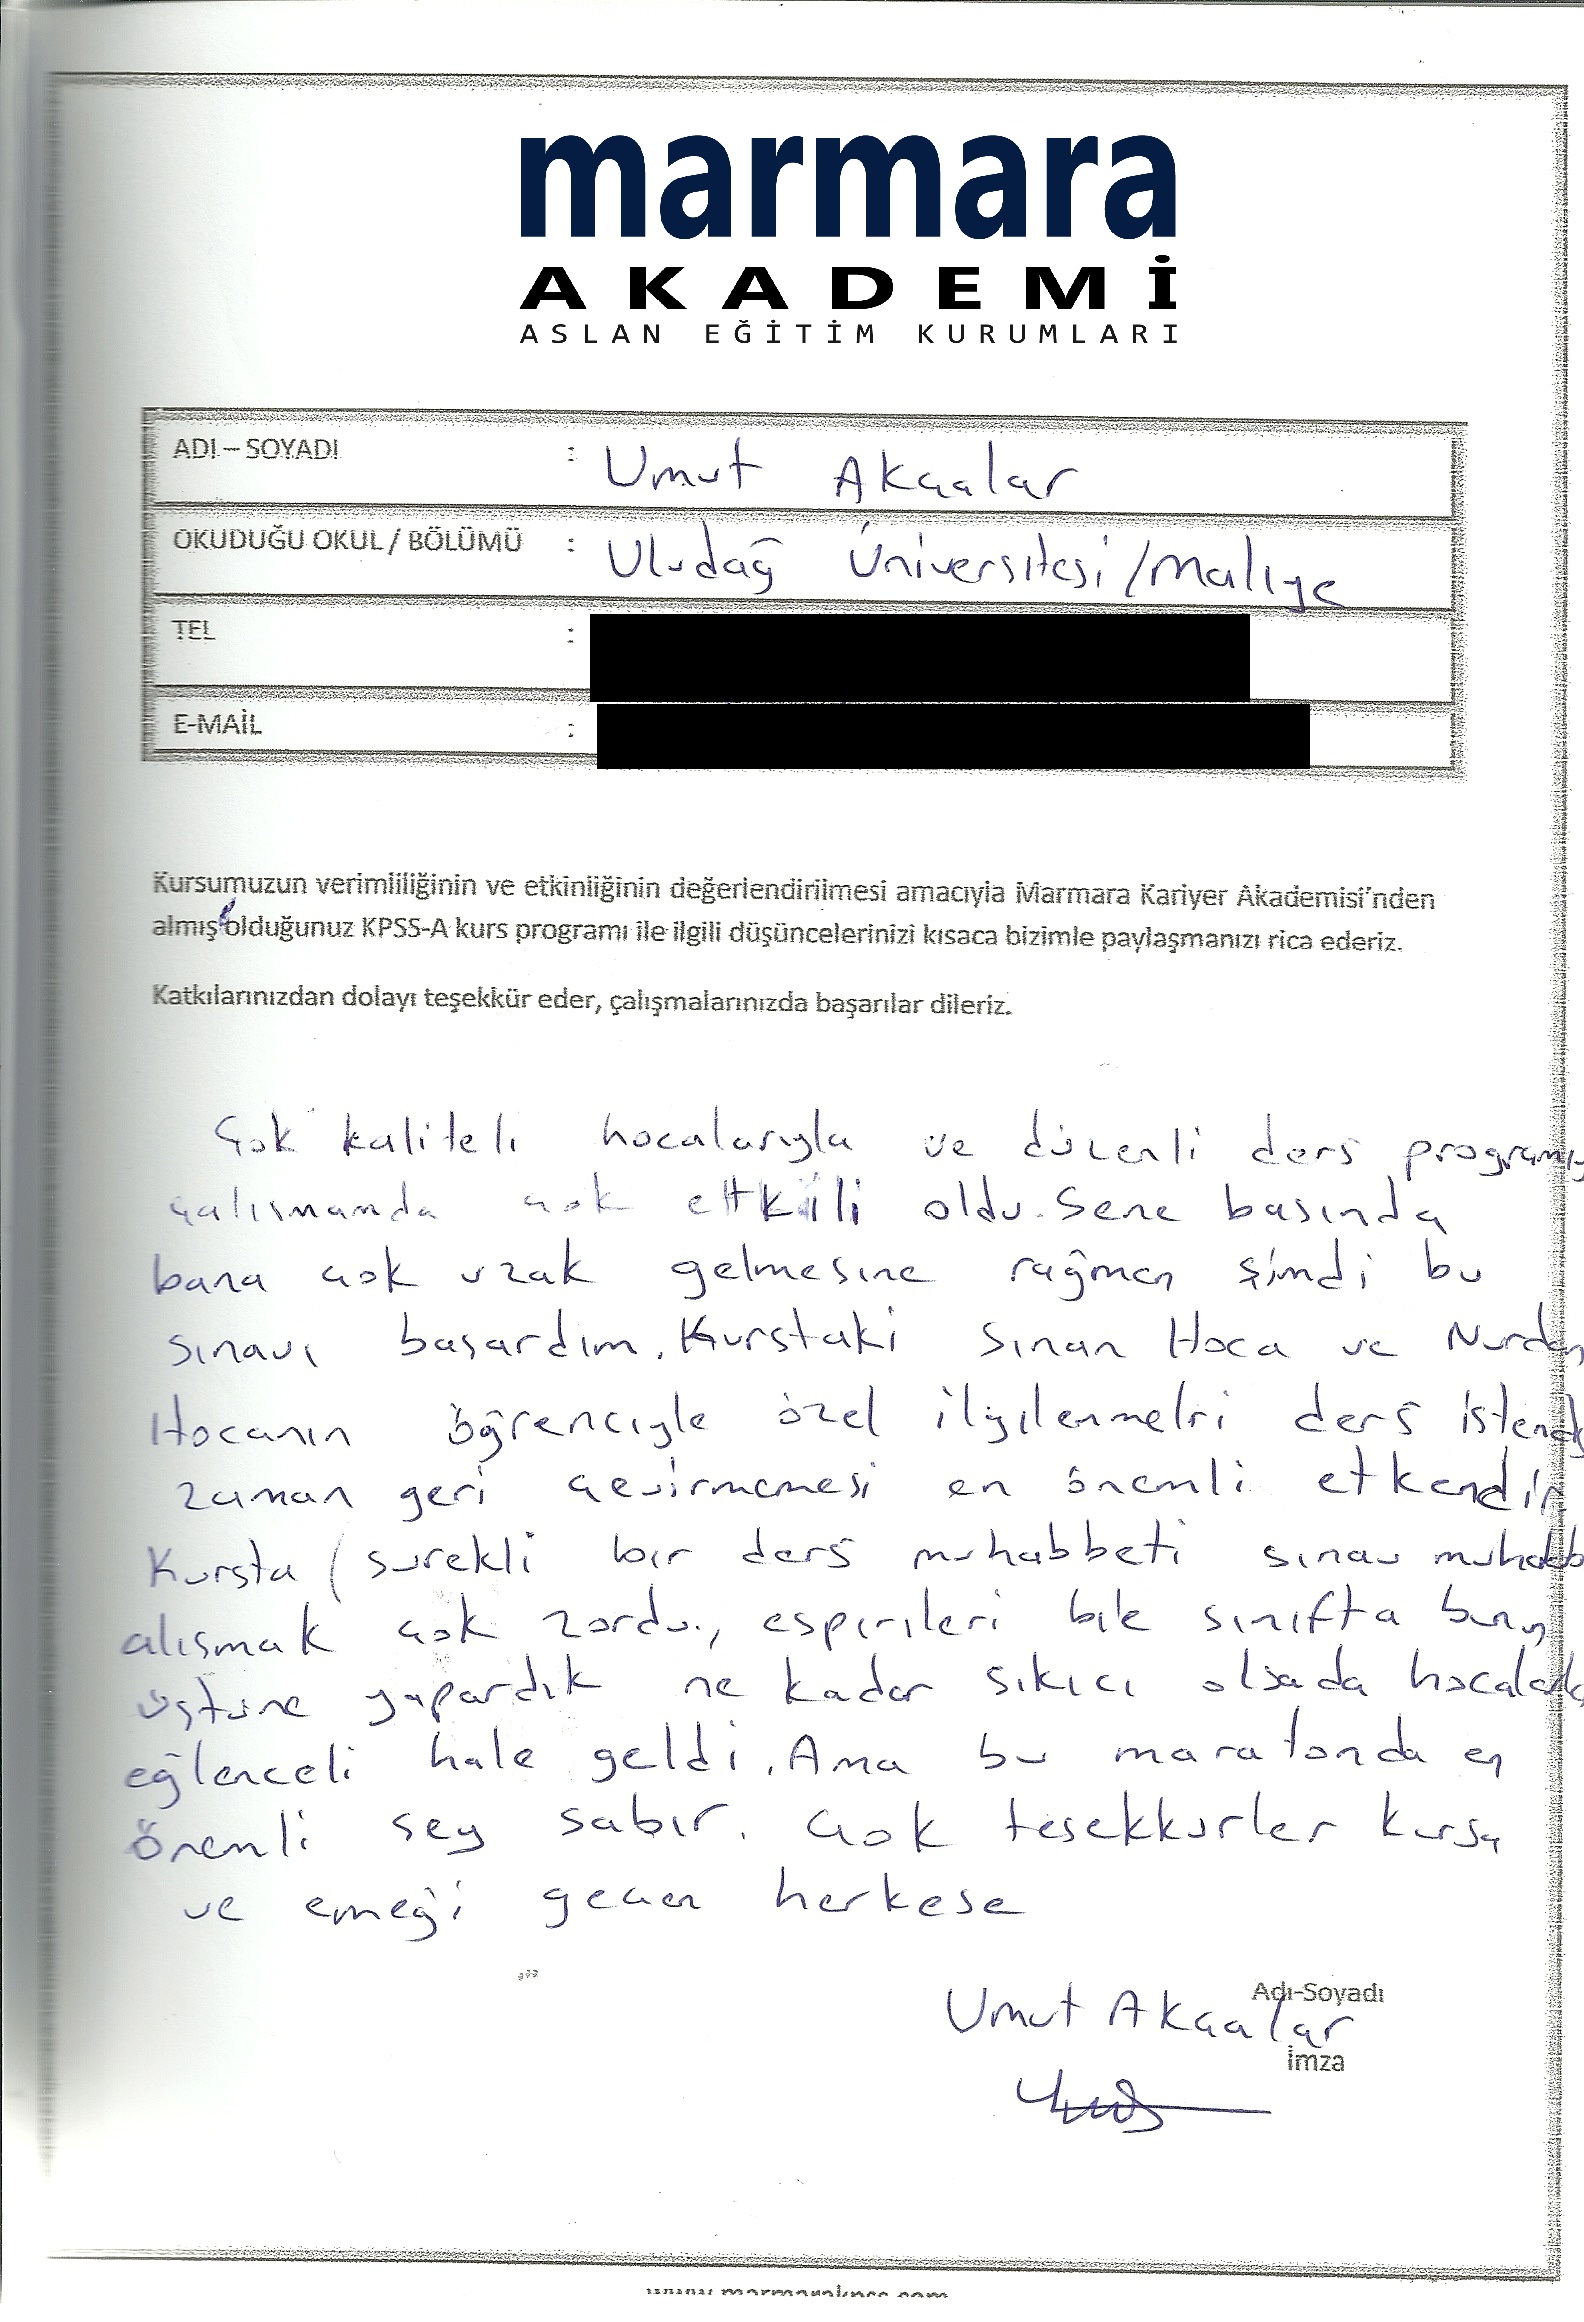 marmara
AKADEMİ
ASLAN EĞİTİM KURUMLARI
ADI – SOYADI : Umut Akçalar
OKUDUĞU OKUL / BÖLÜMÜ : Uludağ Üniversitesi/Maliye
TEL :
E-MAİL :
Kursumuzun verimliliğinin ve etkinliğinin değerlendirilmesi amacıyla Marmara Kariyer Akademisi'nden
almış olduğunuz KPSS-A kurs programı ile ilgili düşüncelerinizi kısaca bizimle paylaşmanızı rica ederiz.
Katkılarınızdan dolayı teşekkür eder, çalışmalarınızda başarılar dileriz.
Çok kaliteli hocalarıyla ve düzenli ders programıy
çalısmamda çok etkili oldu. Sene basında
bana çok uzak gelmesine rağmen şimdi bu
sınavı basardım. Kurstaki Sınan Hoca ve Nurdan
Hocanın öğrencıyle özel ilgılenmelri ders
zaman geri çevirmemesi en önemli etkendir
Kursta surekli bır ders muhabbeti sınav
alısmak çok zordu, espırıleri bıle sınıfta
üstüne yapardık ne kadar sıkıcı olsada
eğlenceli hale geldi. Ama bu maratonda en
önemli sey sabır. Çok tesekkurler kursa
ve emeği geçen herkese
Adı-Soyadı
Umut Akçalar
İmza
www.marmarakpss.com